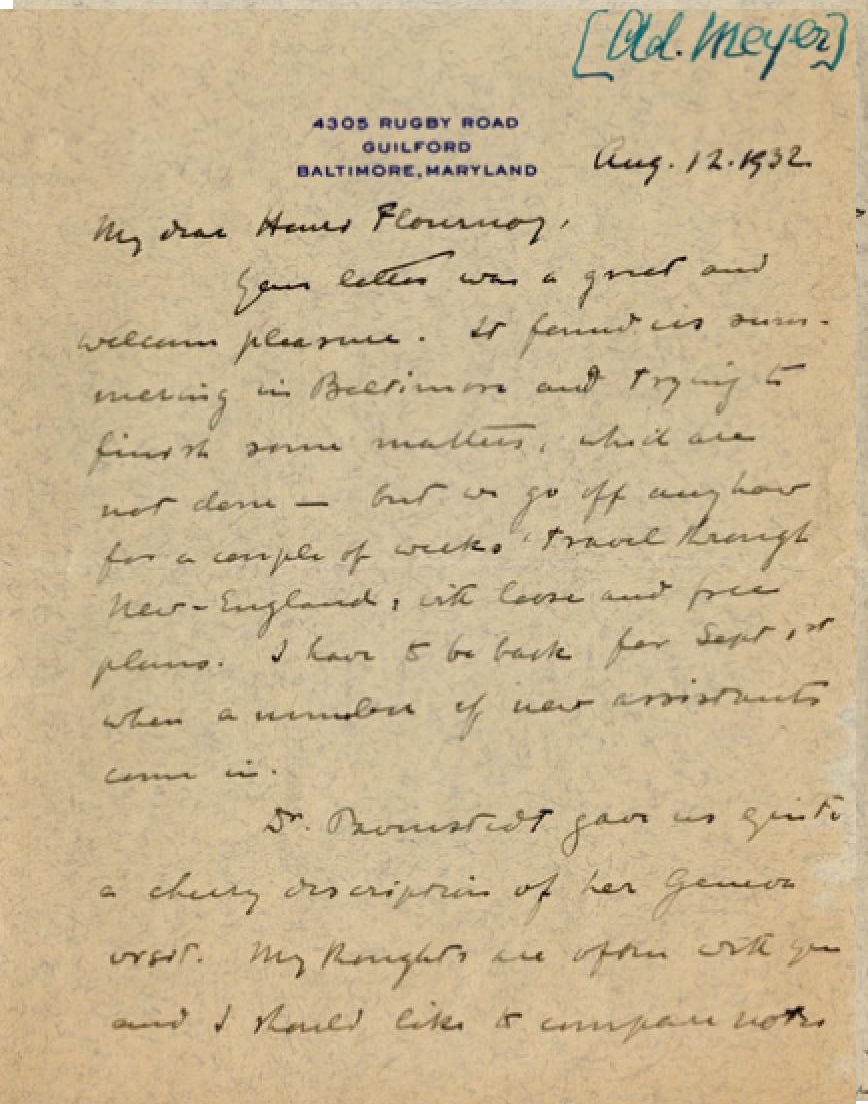 [Ad. Meyer]
4305 RUGBY ROAD
GUILFORD
BALTIMORE, MARYLAND
Aug. 12. 1932.
My dear Henri Flournoy,
Your letter was a great and
welcome pleasure. It found us sum-
mering in Baltimore and trying to
finish some matters, which are
not done — but we go off anyhow
for a couple of weeks' travel through
New-England, with loose and free
plans. I have to be back for Sept 1st
when a number of new assistants
come in.
Dr. gave us quite
a cheery description of her Geneva
visit. My thoughts are often with you
and I should like to compare notes